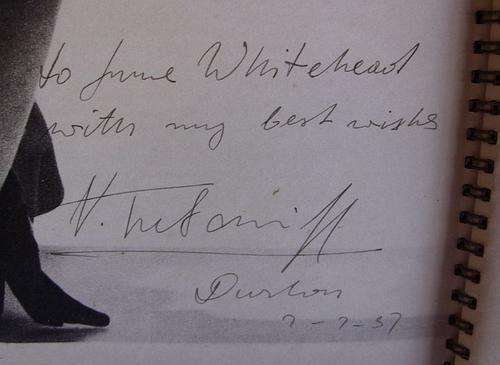 to June Whitehead
with my best wishes
Durban
7-7-57